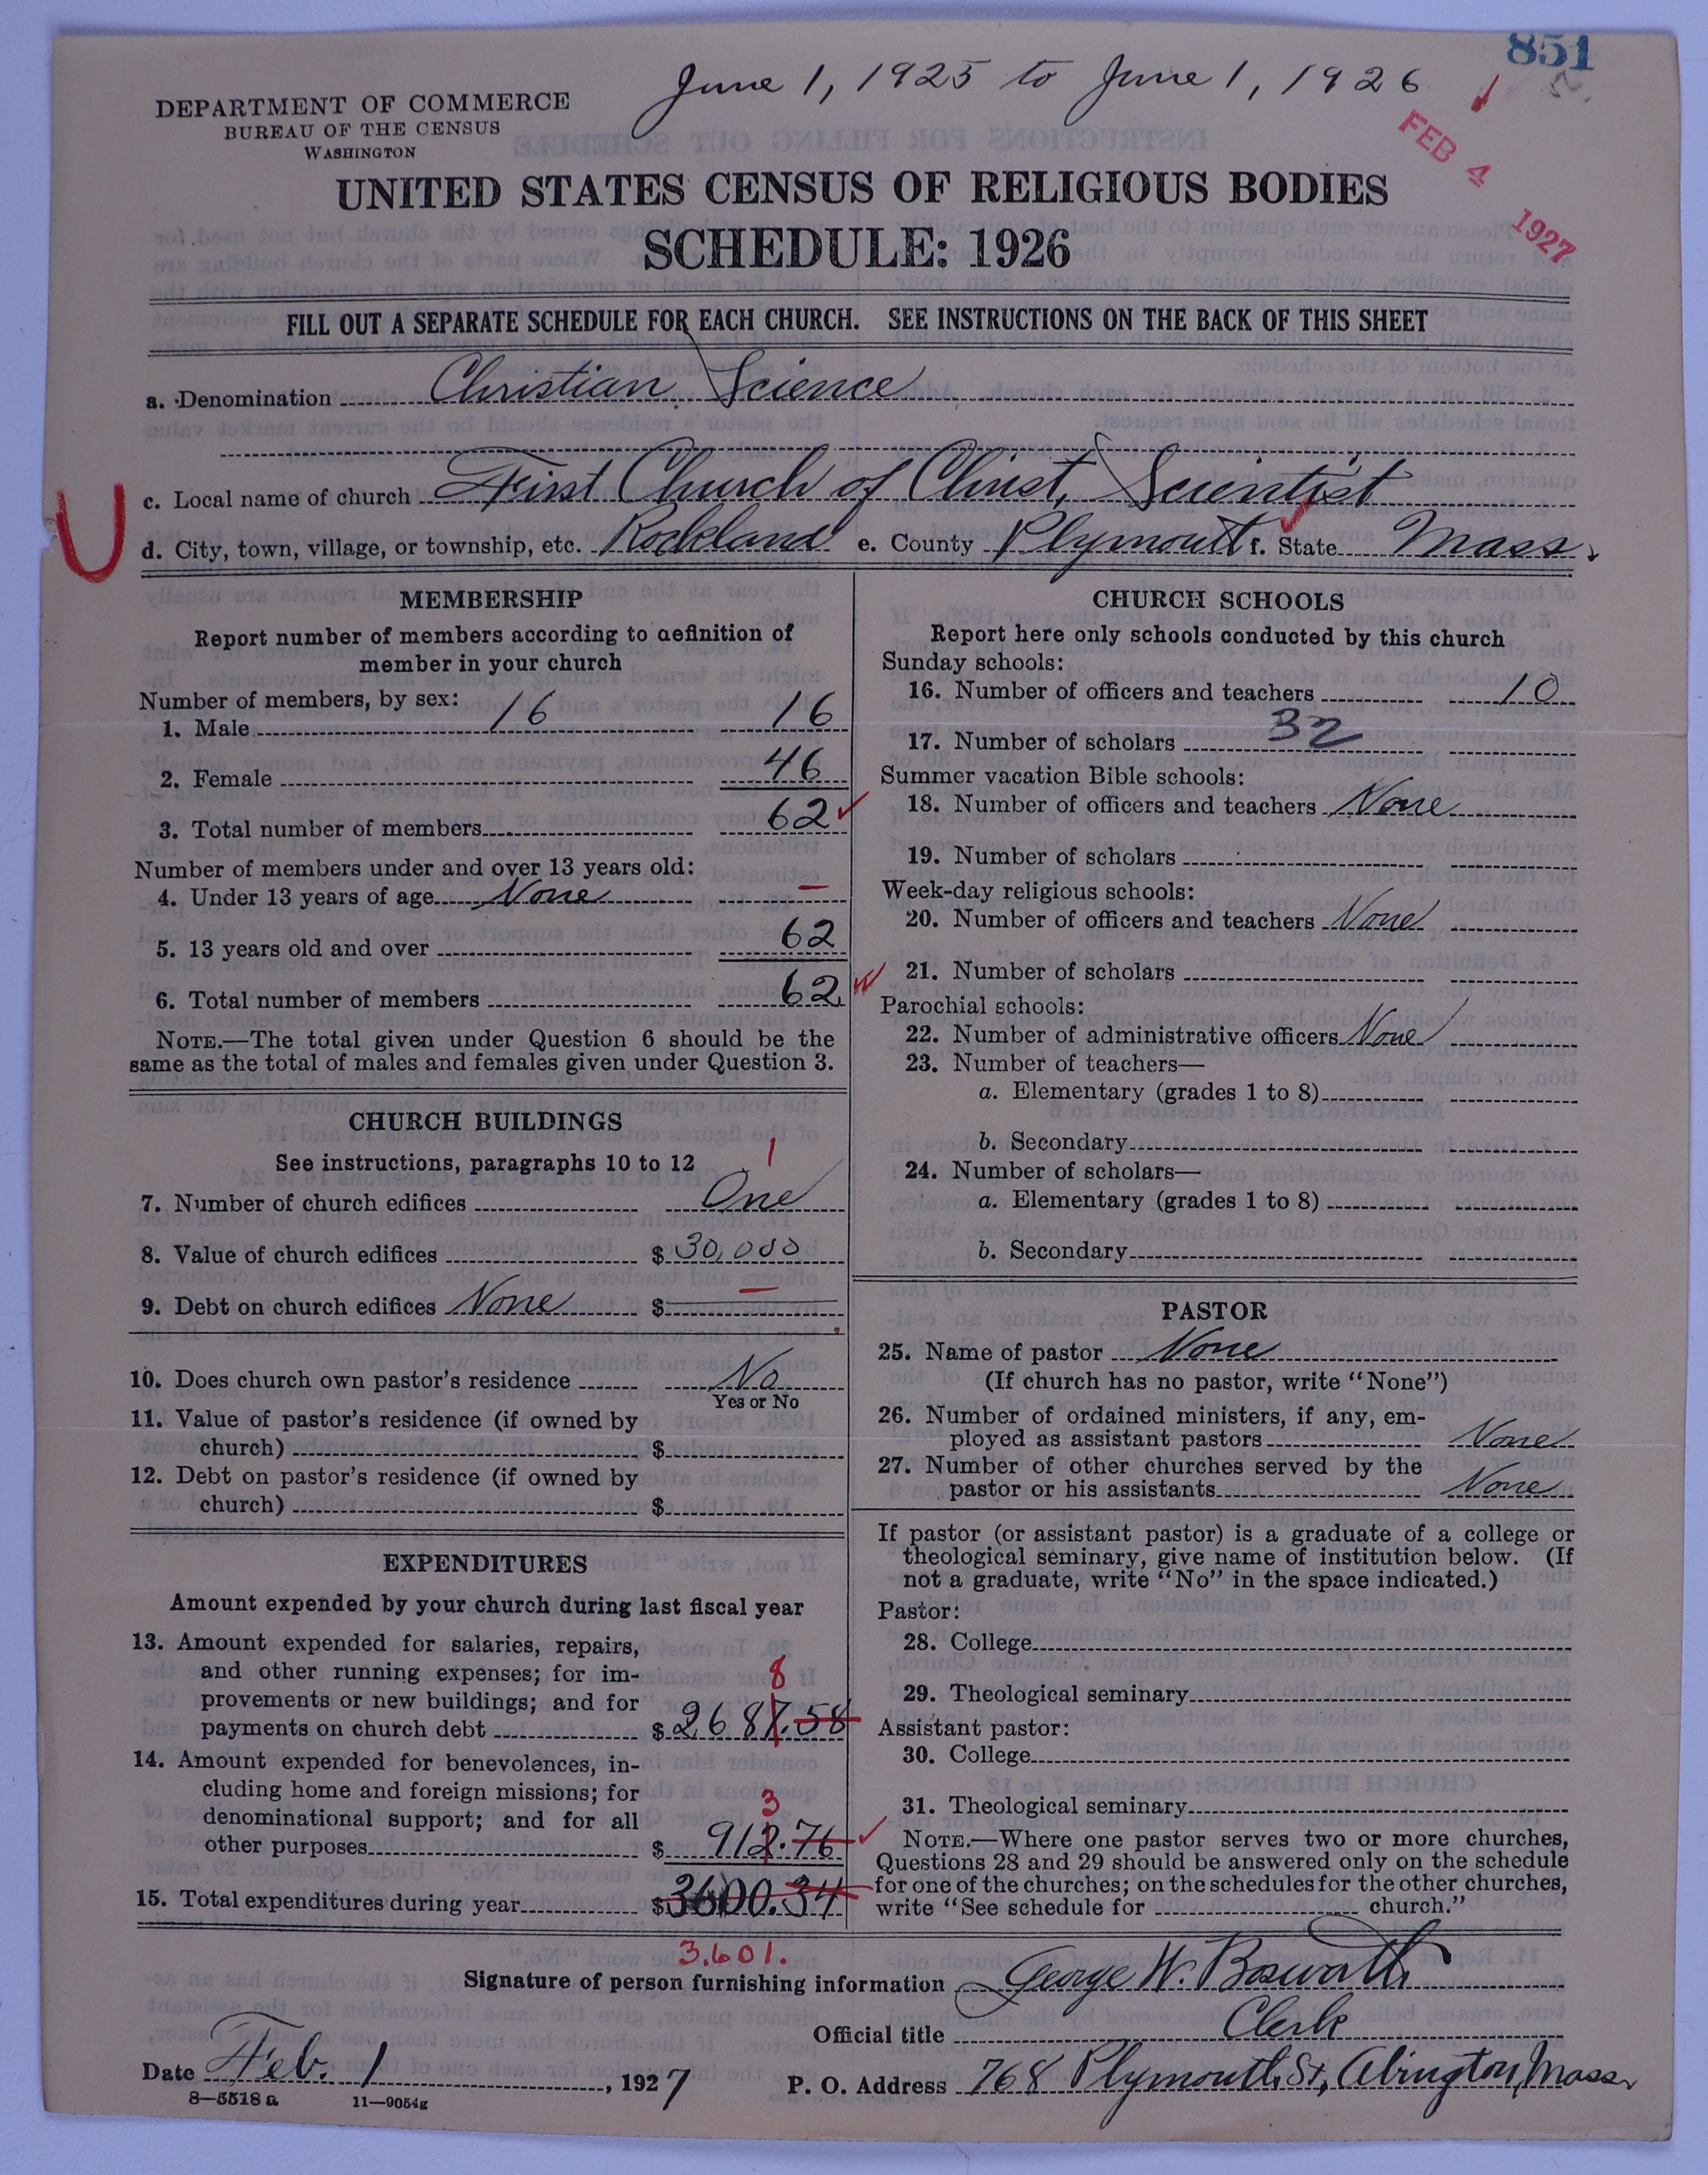 851
June 1, 1925 to June 1, 1926
DEPARTMENT OF COMMERCE
BUREAU OF THE CENSUS
WASHINGTON
FEB 4 1927
UNITED STATES CENSUS OF RELIGIOUS BODIES
SCHEDULE: 1926
FILL OUT A SEPARATE SCHEDULE FOR EACH CHURCH. SEE INSTRUCTIONS ON THE BACK OF THIS SHEET
a. Denomination Christian Science
c. Local name of church First Church of Christ, Scientist
d. City, town, village, or township, etc. Rockland e. County Plymouth f. State Mass.
MEMBERSHIP
Report number of members according to definition of
member in your church
Number of members, by sex:
1. Male 16 16
2. Female 46
3. Total number of members 62
Number of members under and over 13 years old:
4. Under 13 years of age None —
5. 13 years old and over 62
6. Total number of members 62
NOTE.—The total given under Question 6 should be the
same as the total of males and females given under Question 3.
CHURCH BUILDINGS
See instructions, paragraphs 10 to 12
1
7. Number of church edifices One
8. Value of church edifices $30,000
9. Debt on church edifices None $
10. Does church own pastor's residence No
Yes or No
11. Value of pastor's residence (if owned by
church) $
12. Debt on pastor's residence (if owned by
church) $
EXPENDITURES
Amount expended by your church during last fiscal year
13. Amount expended for salaries, repairs,
and other running expenses; for im-
8
provements or new buildings; and for
payments on church debt $2687.58
14. Amount expended for benevolences, in-
cluding home and foreign missions; for
3
denominational support; and for all
other purposes $912.76
15. Total expenditures during year $3600.34
3,601.
CHURCH SCHOOLS
Report here only schools conducted by this church
Sunday schools:
16. Number of officers and teachers 10
17. Number of scholars 32
Summer vacation Bible schools:
18. Number of officers and teachers None
19. Number of scholars
Week-day religious schools:
20. Number of officers and teachers None
21. Number of scholars
Parochial schools:
22. Number of administrative officers None
23. Number of teachers—
a. Elementary (grades 1 to 8)
b. Secondary
24. Number of scholars—
a. Elementary (grades 1 to 8)
b. Secondary
PASTOR
25. Name of pastor None
(If church has no pastor, write "None")
26. Number of ordained ministers, if any, em-
ployed as assistant pastors None
27. Number of other churches served by the
pastor or his assistants None
If pastor (or assistant pastor) is a graduate of a college or
theological seminary, give name of institution below. (If
not a graduate, write "No" in the space indicated.)
Pastor:
28. College
29. Theological seminary
Assistant pastor:
30. College
31. Theological seminary
NOTE.—Where one pastor serves two or more churches,
Questions 28 and 29 should be answered only on the schedule
for one of the churches; on the schedules for the other churches,
write "See schedule for church."
Signature of person furnishing information George W. Bosworth
Official title Clerk
Date Feb. 1, 1927 P. O. Address 768 Plymouth St, Abington, Mass
8—5518 a 11—9054g